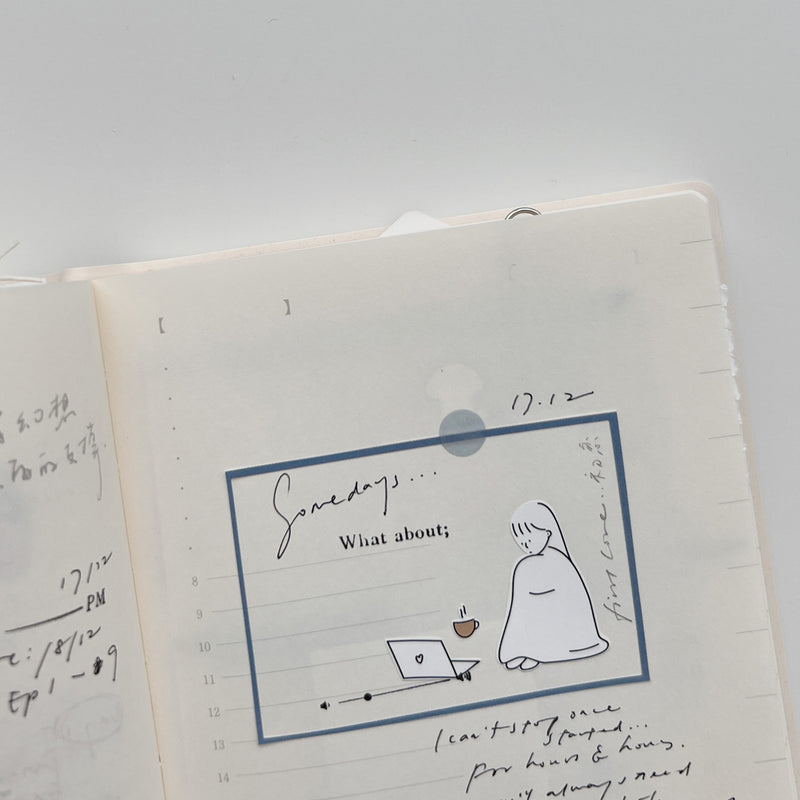 幻想
17/12
PM
: 18/12
Ep 1 - 9
【 】
17.12
Somedays...
What about;
first love.. 初恋
8
9
10
11
12
13
14
I can't stop once
started...
for hours & hours.
always need